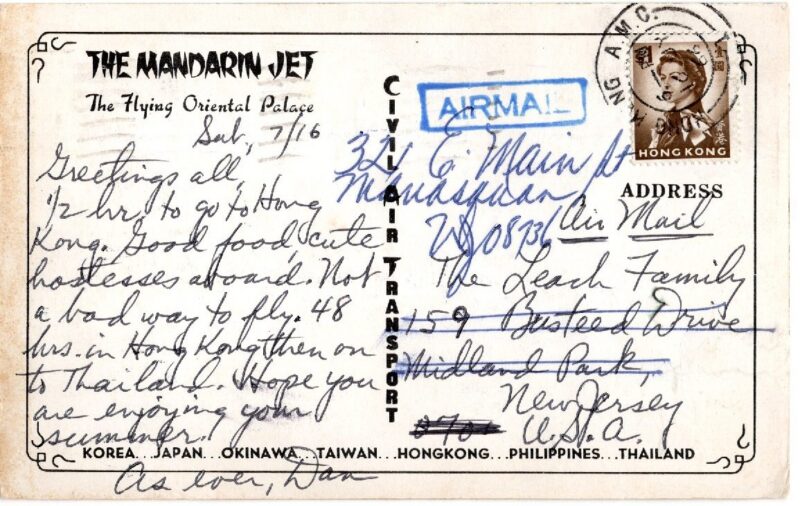 THE MANDARIN JET
The Flying Oriental Palace
Sat, 7/16
Greetings all,
1/2 hr. to go to Hong
Kong. Good food, cute
hostesses aboard. Not
a bad way to fly. 48
hrs. in Hong Kong then on
to Thailand. Hope you
are enjoying your
summer.
As ever, Dan
CIVIL AIR TRANSPORT
AIRMAIL
A.M.C.
HONG KONG
香港
32 E. Main St
Manasquan
NJ 08736
ADDRESS
Air Mail
The Leach Family
159 Busteed Drive
Midland Park,
New Jersey
U.S.A.
KOREA...JAPAN...OKINAWA...TAIWAN...HONGKONG...PHILIPPINES...THAILAND